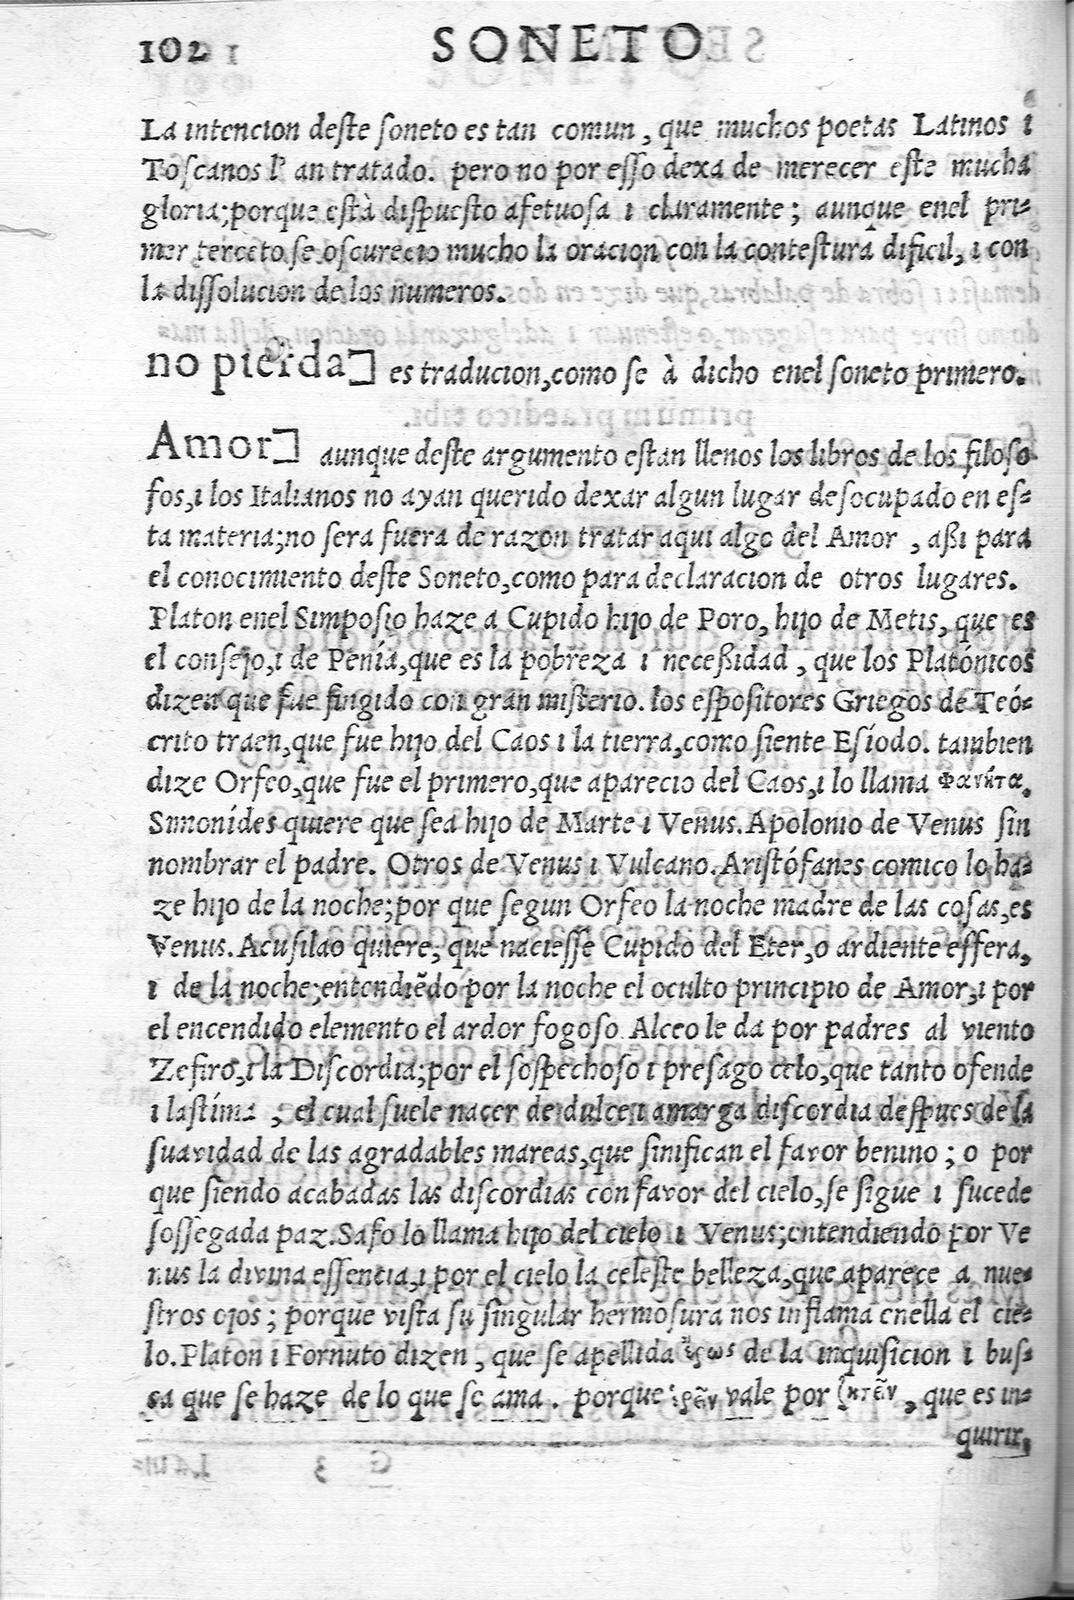 102 SONETO
La intencion deste soneto es tan comun, que muchos poetas Latinos i
Toscanos l' an tratado. pero no por esso dexa de merecer este mucha
gloria; porque està dispuesto afetuosa i claramente; aunque enel pri-
mer terceto se oscurecio mucho la oracion con la contestura dificil, i con
la dissolucion de los numeros.
no pierda] es traducion, como se à dicho enel soneto primero.
Amor] aunque deste argumento estan llenos los libros de los filoso
fos, i los Italianos no ayan querido dexar algun lugar desocupado en es-
ta materia; no sera fuera de razon tratar aqui algo del Amor, assi para
el conocimiento deste Soneto, como para declaracion de otros lugares.
Platon enel Simposio haze a Cupido hijo de Poro, hijo de Metis, que es
el consejo, i de Penía, que es la pobreza i necessidad, que los Platónicos
dizen que fue fingido con gran misterio. los espositores Griegos de Teó-
crito traen, que fue hijo del Caos i la tierra, como siente Esíodo. tambien
dize Orfeo, que fue el primero, que aparecio del Caos, i lo llama Φανήτα.
Simonídes quiere que sea hijo de Marte i Venus. Apolonio de Venus sin
nombrar el padre. Otros de Venus i Vulcano. Aristófanes comico lo ha-
ze hijo de la noche; por que segun Orfeo la noche madre de las cosas, es
Venus. Acusilao quiere, que naciesse Cupido del Eter, o ardiente esfera,
i de la noche; entendiẽdo por la noche el oculto principio de Amor, i por
el encendido elemento el ardor fogoso. Alceo le da por padres al viento
Zefiro, i la Discordia; por el sospechoso i presago celo, que tanto ofende
i lastíma; el cual suele nacer de dulce i amarga discordia despues de la
suavidad de las agradables mareas, que sinifican el favor benino; o por
que siendo acabadas las discordias con favor del cielo, se sigue i sucede
sossegada paz. Safo lo llama hijo del cielo i Venus; entendiendo por Ve
nus la divina essencia, i por el cielo la celeste belleza, que aparece a nue-
stros ojos; porque vista su singular hermosura nos inflama enella el cie-
lo. Platon i Fornuto dizen, que se apellida ἔρως de la inquisicion i bus-
sa que se haze de lo que se ama. porque ἐρᾶν vale por que es in-
quirir,